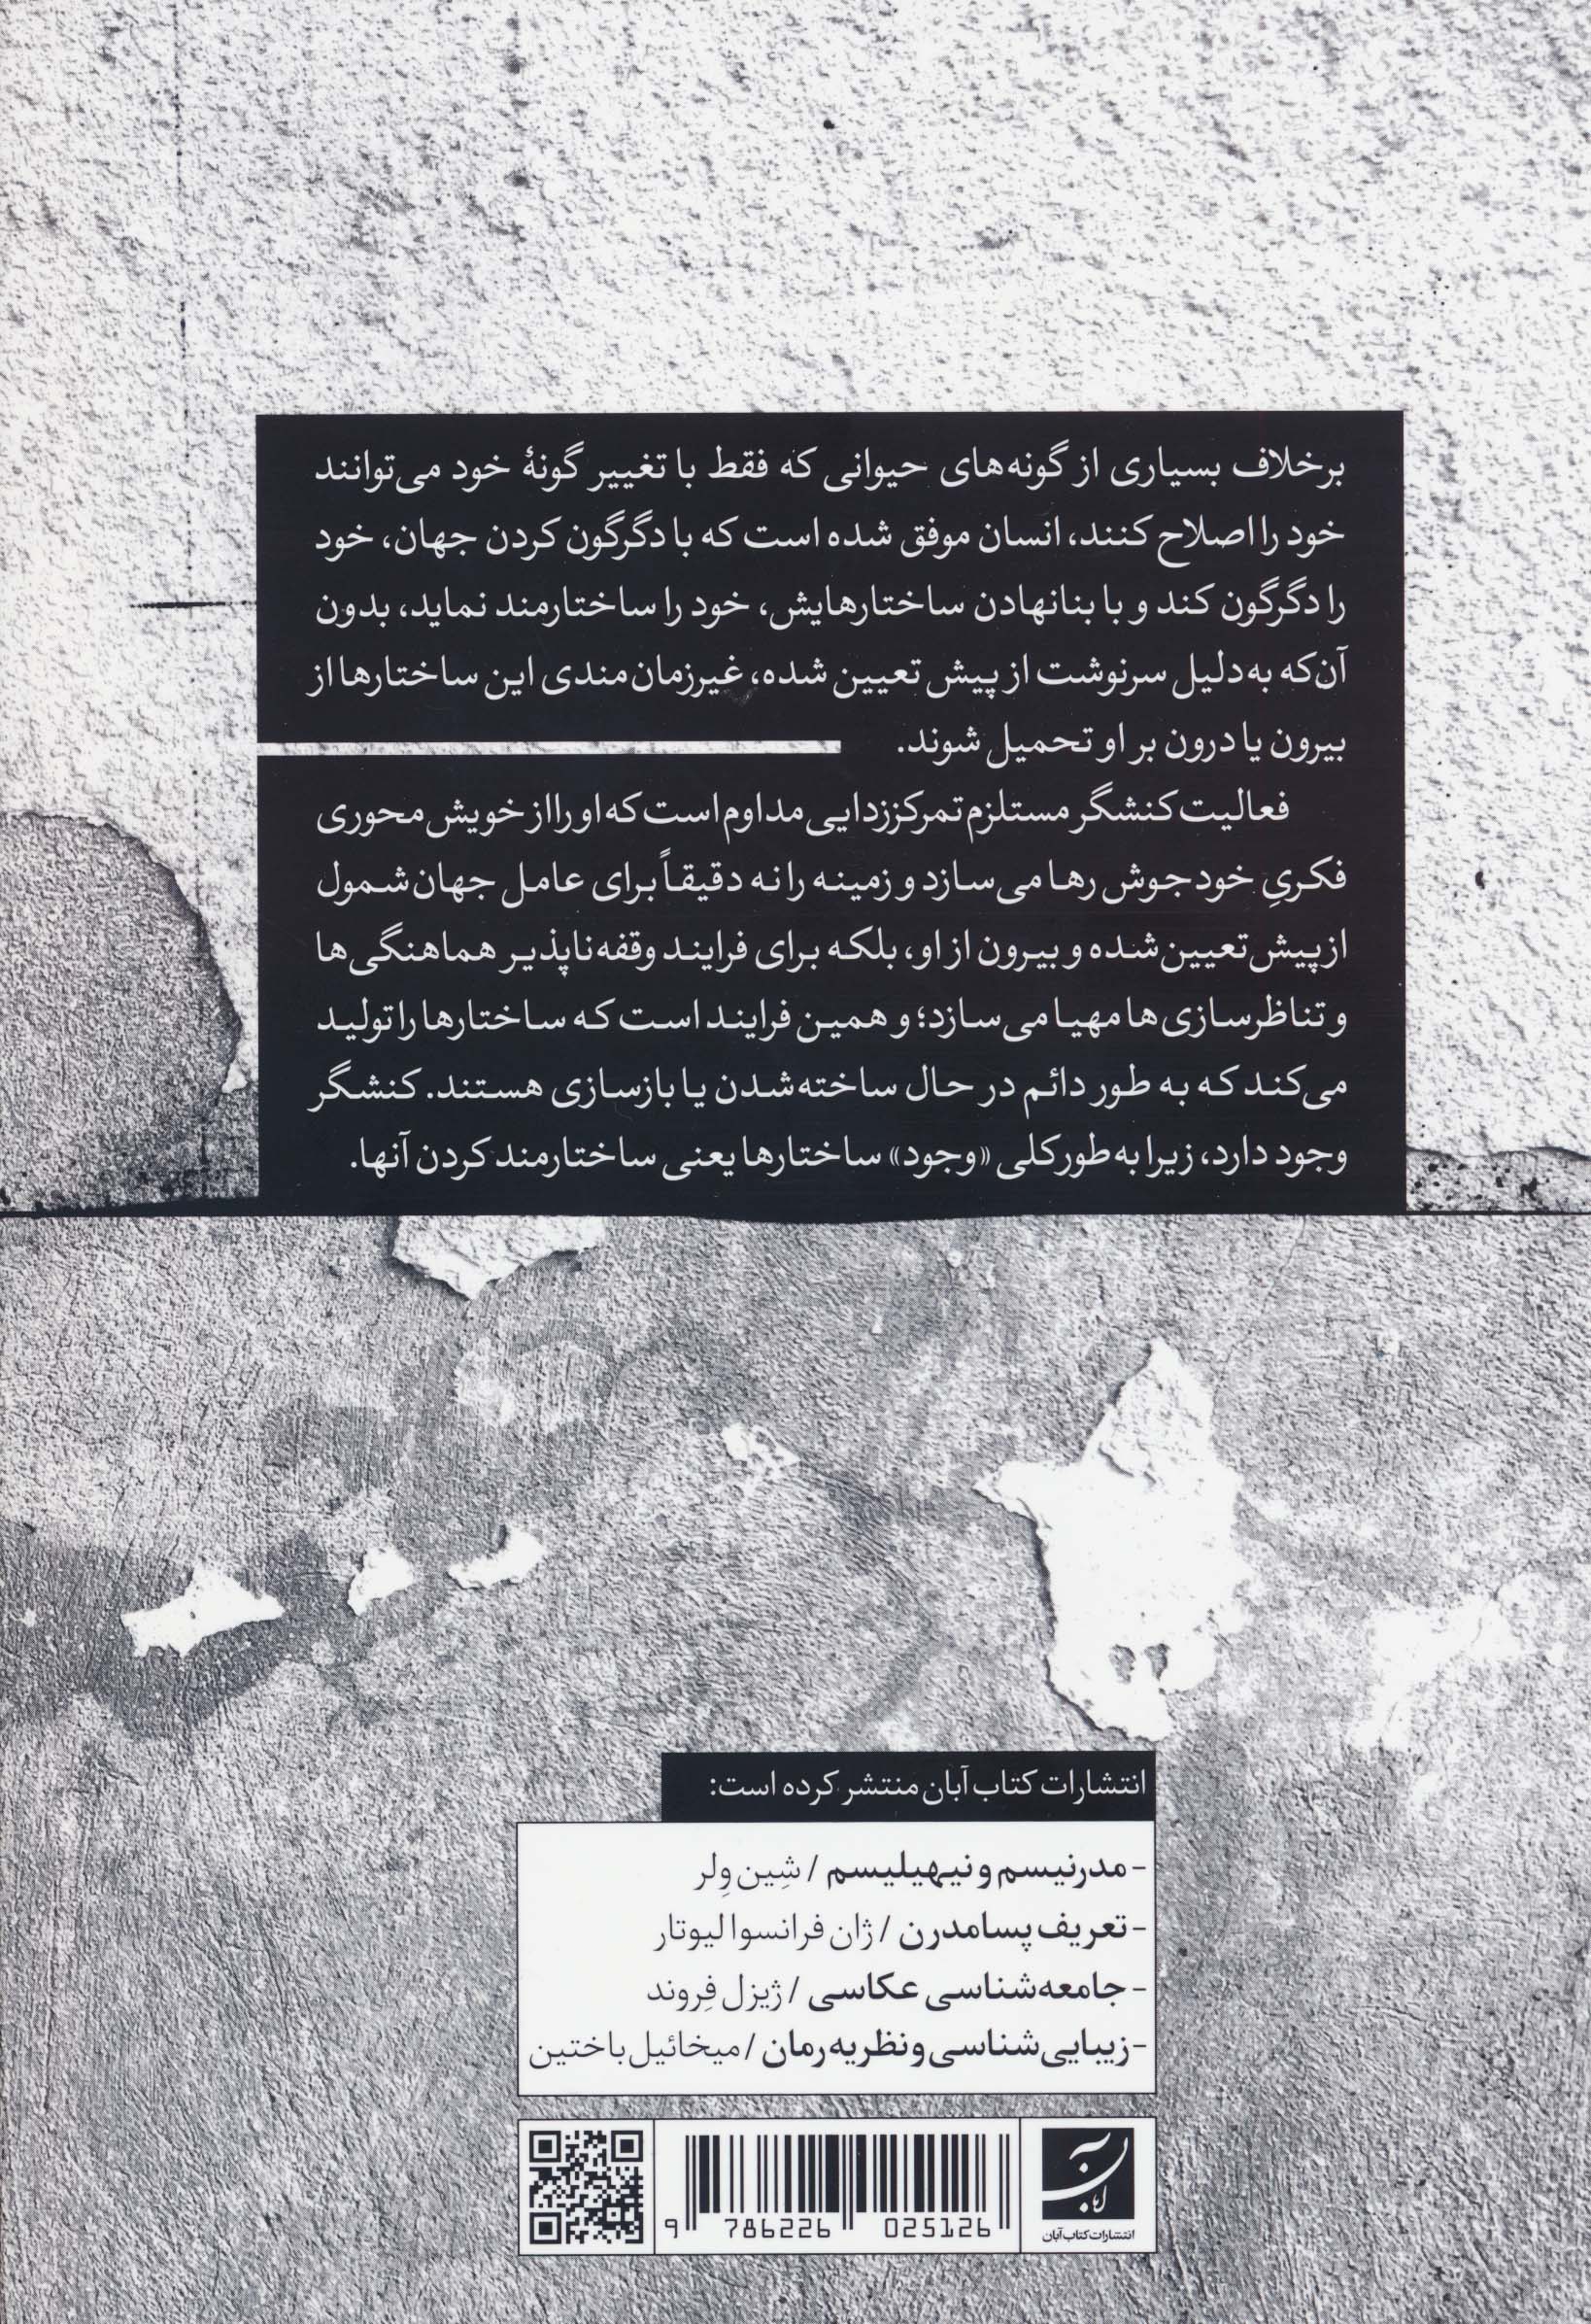 برخلاف بسیاری از گونه‌های حیوانی که فقط با تغییر گونهٔ خود می‌توانند
خود را اصلاح کنند، انسان موفق شده است که با دگرگون کردن جهان، خود
را دگرگون کند و با بنانهادن ساختارهایش، خود را ساختارمند نماید، بدون
آن‌که به‌دلیل سرنوشت از پیش تعیین شده، غیرزمان‌مندی این ساختارها از
بیرون یا درون بر او تحمیل شوند.
فعالیت کنشگر مستلزم تمرکززدایی مداوم است که او را از خویش‌محوری
فکریِ خودجوش رها می‌سازد و زمینه را نه دقیقاً برای عامل جهان‌شمول
ازپیش‌تعیین‌شده و بیرون از او، بلکه برای فرایند وقفه‌ناپذیر هماهنگی‌ها
و تناظرسازی‌ها مهیا می‌سازد؛ و همین فرایند است که ساختارها را تولید
می‌کند که به طور دائم در حال ساخته‌شدن یا بازسازی هستند. کنشگر
وجود دارد، زیرا به‌طورکلی «وجود» ساختارها یعنی ساختارمند کردن آنها.
انتشارات کتاب آبان منتشر کرده است:
- مدرنیسم و نیهیلیسم / شِین وِلر
- تعریف پسامدرن / ژان فرانسوا لیوتار
- جامعه‌شناسی عکاسی / ژیزل فِروند
- زیبایی‌شناسی و نظریه رمان / میخائیل باختین
آبان
کتاب
انتشارات کتاب آبان
9 786226 025126